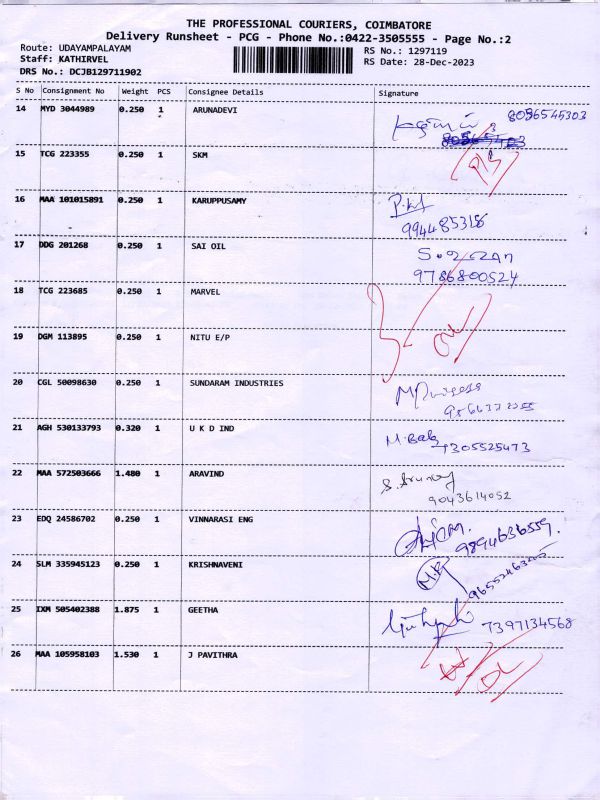 THE PROFESSIONAL COURIERS, COIMBATORE
Delivery Runsheet - PCG - Phone No.:0422-3505555 - Page No.:2
Route: UDAYAMPALAYAM RS No.: 1297119
Staff: KATHIRVEL RS Date: 28-Dec-2023
DRS No.: DCJB129711902
S No Consignment No Weight PCS Consignee Details Signature
14 MYD 3044989 0.250 1 ARUNADEVI 8056545303
15 TCG 223355 0.250 1 SKM
16 MAA 101015891 0.250 1 KARUPPUSAMY
9944853186
17 DDG 201268 0.250 1 SAI OIL
9786800524
18 TCG 223685 0.250 1 MARVEL
19 DGM 113895 0.250 1 NITU E/P
20 CGL 50098630 0.250 1 SUNDARAM INDUSTRIES
21 AGH 530133793 0.320 1 U K D IND M. Bab 7305525473
22 MAA 572503666 1.480 1 ARAVIND
9043614052
23 EDQ 24586702 0.250 1 VINNARASI ENG 9894636559.
24 SLM 335945123 0.250 1 KRISHNAVENI M.R
25 IXM 505402388 1.875 1 GEETHA 7397134568
26 MAA 105958103 1.530 1 J PAVITHRA DL